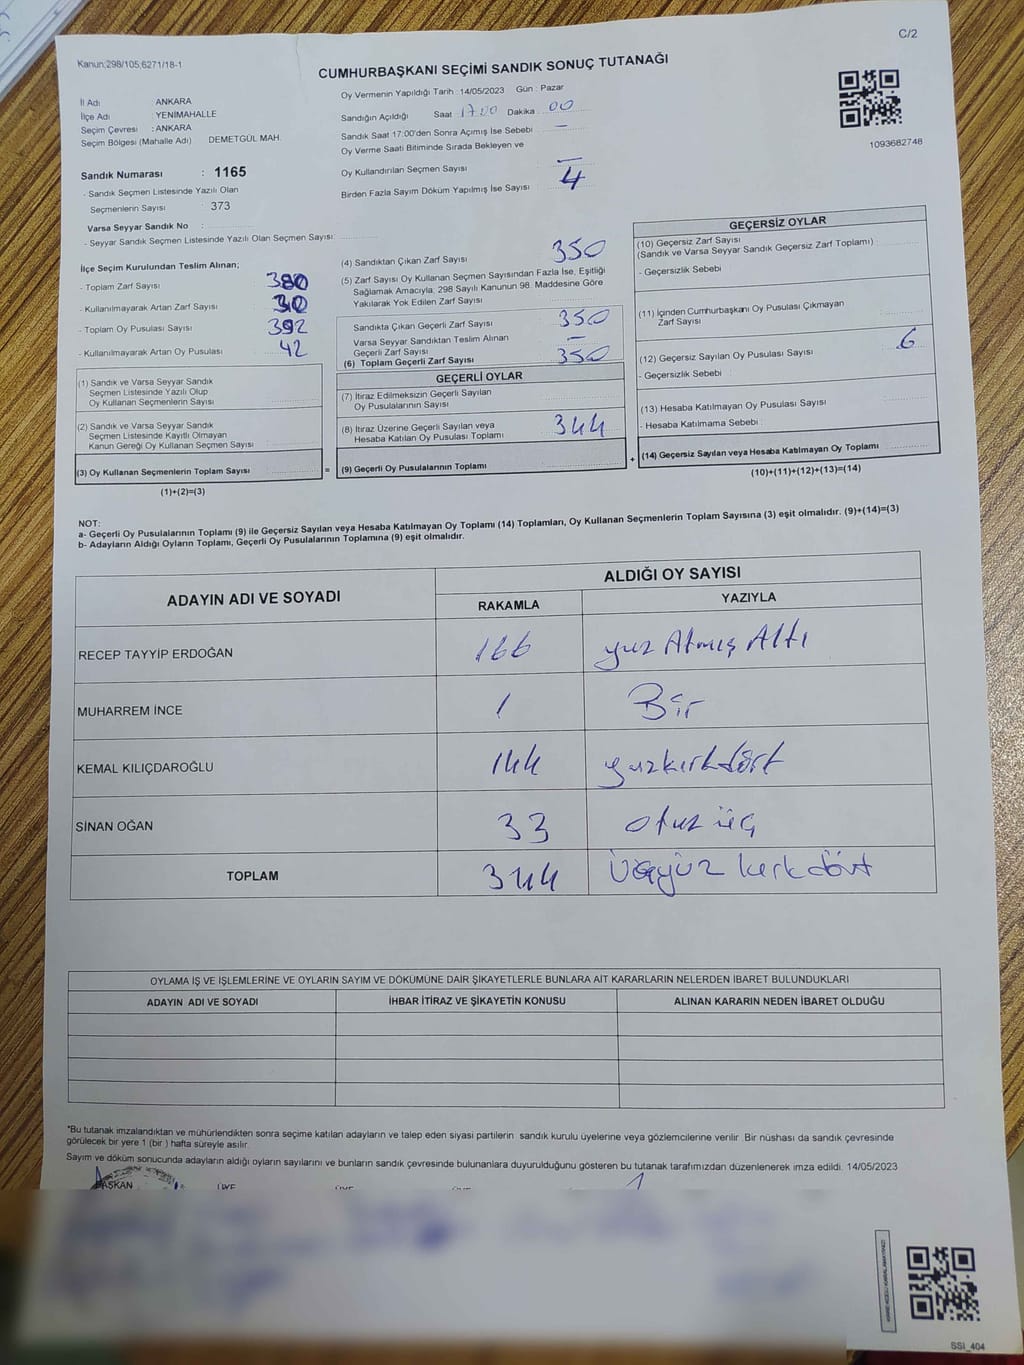 C/2
Kanun;298/105;6271/18-1
CUMHURBAŞKANI SEÇİMİ SANDIK SONUÇ TUTANAĞI
İl Adı ANKARA
İlçe Adı YENİMAHALLE
Seçim Çevresi : ANKARA
Seçim Bölgesi (Mahalle Adı) DEMETGÜL MAH.
Sandık Numarası : 1165
- Sandık Seçmen Listesinde Yazılı Olan
Seçmenlerin Sayısı : 373
Varsa Seyyar Sandık No :
- Seyyar Sandık Seçmen Listesinde Yazılı Olan Seçmen Sayısı:
Oy Vermenin Yapıldığı Tarih : 14/05/2023 Gün : Pazar
Sandığın Açıldığı Saat 17:00 Dakika 00
Sandık Saat 17:00'den Sonra Açımış İse Sebebi : —
Oy Verme Saati Bitiminde Sırada Bekleyen ve
Oy Kullandırılan Seçmen Sayısı : —
Birden Fazla Sayım Döküm Yapılmış İse Sayısı : 4
1093682748
İlçe Seçim Kurulundan Teslim Alınan;
- Toplam Zarf Sayısı : 380
- Kullanılmayarak Artan Zarf Sayısı : 30
- Toplam Oy Pusulası Sayısı : 392
- Kullanılmayarak Artan Oy Pusulası : 42
(1) Sandık ve Varsa Seyyar Sandık
Seçmen Listesinde Yazılı Olup
Oy Kullanan Seçmenlerin Sayısı
(2) Sandık ve Varsa Seyyar Sandık
Seçmen Listesinde Kayıtlı Olmayan
Kanun Gereği Oy Kullanan Seçmen Sayısı :
(3) Oy Kullanan Seçmenlerin Toplam Sayısı
(1)+(2)=(3)
=
(4) Sandıktan Çıkan Zarf Sayısı : 350
(5) Zarf Sayısı Oy Kullanan Seçmen Sayısından Fazla İse, Eşitliği
Sağlamak Amacıyla, 298 Sayılı Kanunun 98. Maddesine Göre
Yakılarak Yok Edilen Zarf Sayısı :
Sandıkta Çıkan Geçerli Zarf Sayısı : 350
Varsa Seyyar Sandıktan Teslim Alınan
Geçerli Zarf Sayısı : —
(6) Toplam Geçerli Zarf Sayısı : 350
GEÇERLİ OYLAR
(7) İtiraz Edilmeksizin Geçerli Sayılan
Oy Pusulalarının Sayısı :
(8) İtiraz Üzerine Geçerli Sayılan veya
Hesaba Katılan Oy Pusulası Toplamı : 344
(9) Geçerli Oy Pusulalarının Toplamı
+
GEÇERSİZ OYLAR
(10) Geçersiz Zarf Sayısı
(Sandık ve Varsa Seyyar Sandık Geçersiz Zarf Toplamı)
- Geçersizlik Sebebi :
(11) İçinden Cumhurbaşkanı Oy Pusulası Çıkmayan
Zarf Sayısı :
(12) Geçersiz Sayılan Oy Pusulası Sayısı : 6
- Geçersizlik Sebebi :
(13) Hesaba Katılmayan Oy Pusulası Sayısı :
- Hesaba Katılmama Sebebi :
(14) Geçersiz Sayılan veya Hesaba Katılmayan Oy Toplamı
(10)+(11)+(12)+(13)=(14)
NOT:
a- Geçerli Oy Pusulalarının Toplamı (9) ile Geçersiz Sayılan veya Hesaba Katılmayan Oy Toplamı (14) Toplamları, Oy Kullanan Seçmenlerin Toplam Sayısına (3) eşit olmalıdır. (9)+(14)=(3)
b- Adayların Aldığı Oyların Toplamı, Geçerli Oy Pusulalarının Toplamına (9) eşit olmalıdır.
ADAYIN ADI VE SOYADI
ALDIĞI OY SAYISI
RAKAMLA YAZIYLA
RECEP TAYYİP ERDOĞAN 166 yüz Atmış Altı
MUHARREM İNCE 1 Bir
KEMAL KILIÇDAROĞLU 144 yüzkırkdört
SİNAN OĞAN 33 otuz üç
TOPLAM 344 üçyüz kırkdört
OYLAMA İŞ VE İŞLEMLERİNE VE OYLARIN SAYIM VE DÖKÜMÜNE DAİR ŞİKAYETLERLE BUNLARA AİT KARARLARIN NELERDEN İBARET BULUNDUKLARI
ADAYIN ADI VE SOYADI İHBAR İTİRAZ VE ŞİKAYETİN KONUSU ALINAN KARARIN NEDEN İBARET OLDUĞU
"Bu tutanak imzalandıktan ve mühürlendikten sonra seçime katılan adayların ve talep eden siyasi partilerin sandık kurulu üyelerine veya gözlemcilerine verilir. Bir nüshası da sandık çevresinde
görülecek bir yere 1 (bir ) hafta süreyle asılır.
Sayım ve döküm sonucunda adayların aldığı oyların sayılarını ve bunların sandık çevresinde bulunanlara duyurulduğunu gösteren bu tutanak tarafımızdan düzenlenerek imza edildi. 14/05/2023
BAŞKAN ÜYE ÜYE ÜYE
SSI_404